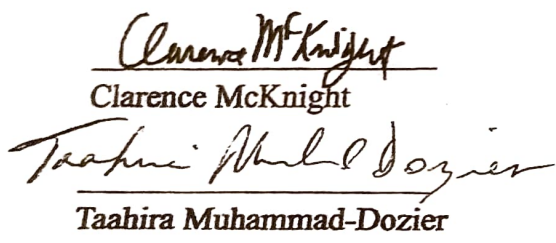 Clarence McKnight
Clarence McKnight
Taahira Muhammad Dozier
Taahira Muhammad-Dozier